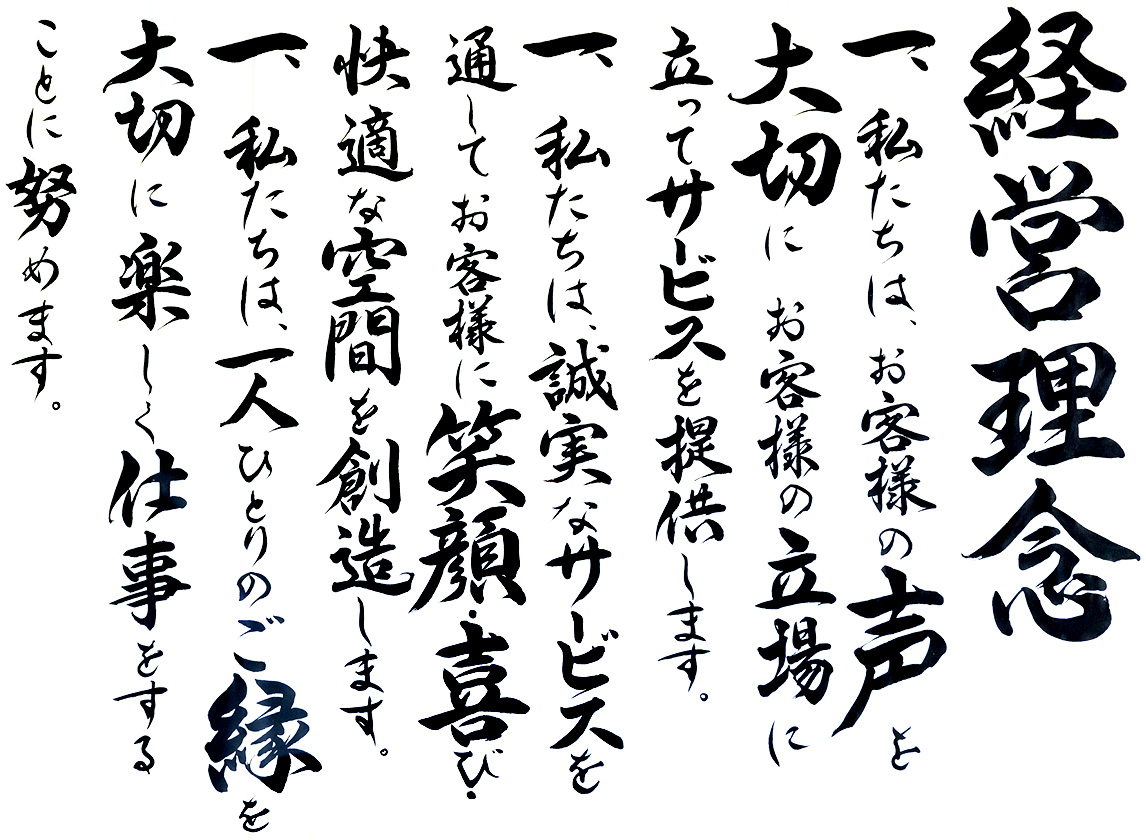 経営理念
一、私たちは、お客様の声を
大切に お客様の立場に
立ってサービスを提供します。
一、私たちは、誠実なサービスを
通してお客様に笑顔・喜び・
快適な空間を創造します。
一、私たちは、一人ひとりのご縁を
大切に楽しく仕事をする
ことに努めます。